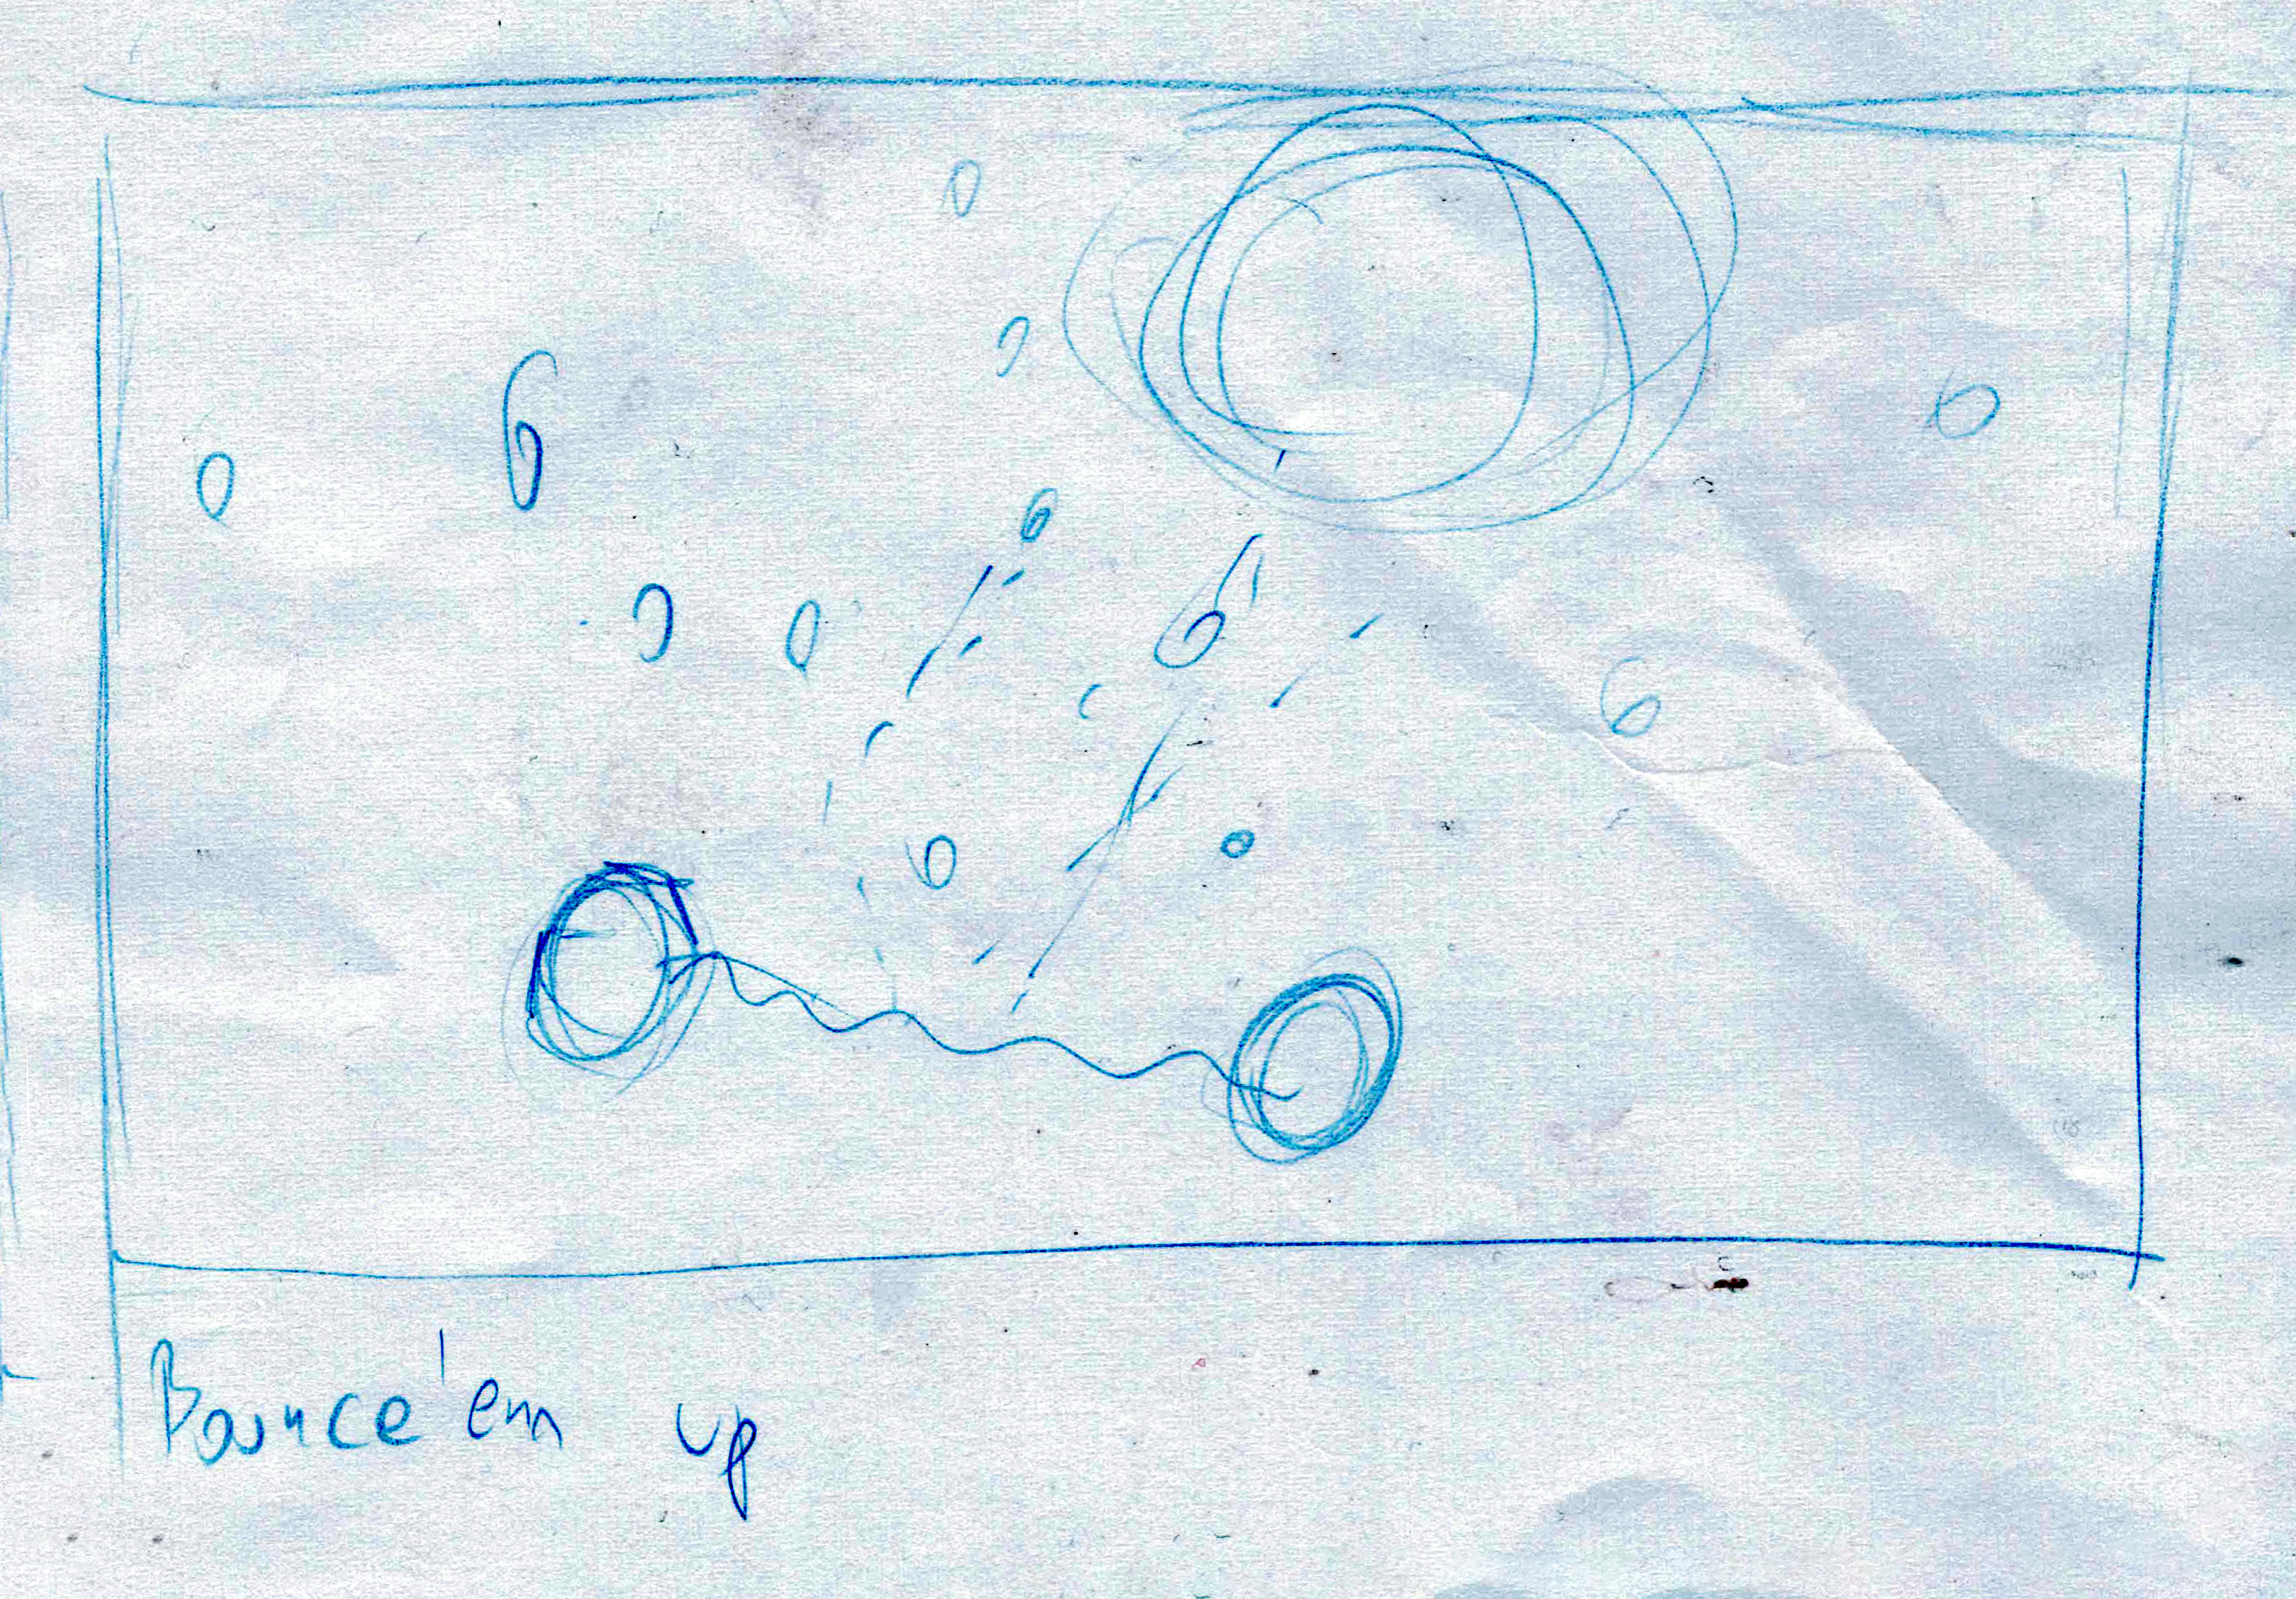 Bounce 'em up